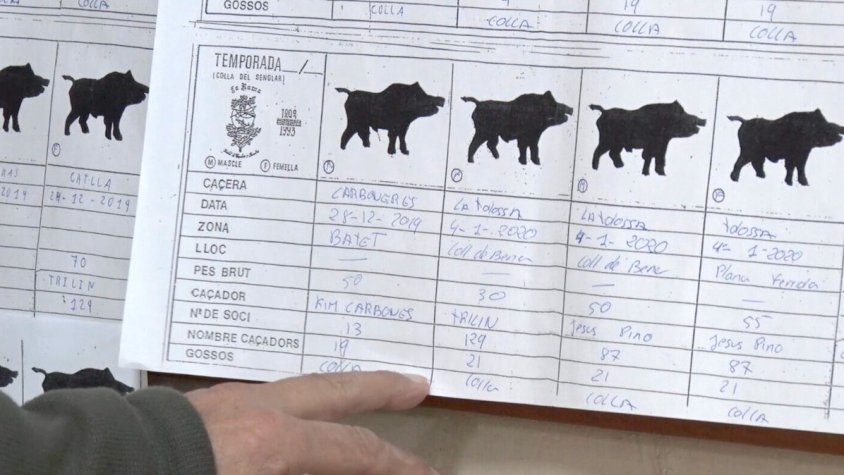 GOSSOS COLLA COLLA COLLA COLLA
19 19
COLLA
TEMPORADA __/__
(COLLA DEL SENGLAR)
1993
M MASCLE F FEMELLA
CAÇERA CARBONERES LA TOLOSSA LA TOLOSSA TOLOSSA
DATA 28-12-2019 4-1-2020 4-1-2020 4-1-2020
ZONA BATET Coll de Bena Coll de Bena Plana
LLOC — — — —
PES BRUT 50 30 50 55
CAÇADOR KIM CARBONES TRILIN Jesus Pino Jesus Pino
Nº DE SOCI 13 129 87 87
NOMBRE CAÇADORS 19 21 21 21
GOSSOS COLLA COLLA COLLA COLLA
2019 24-12-2019
70
TRILIN
129